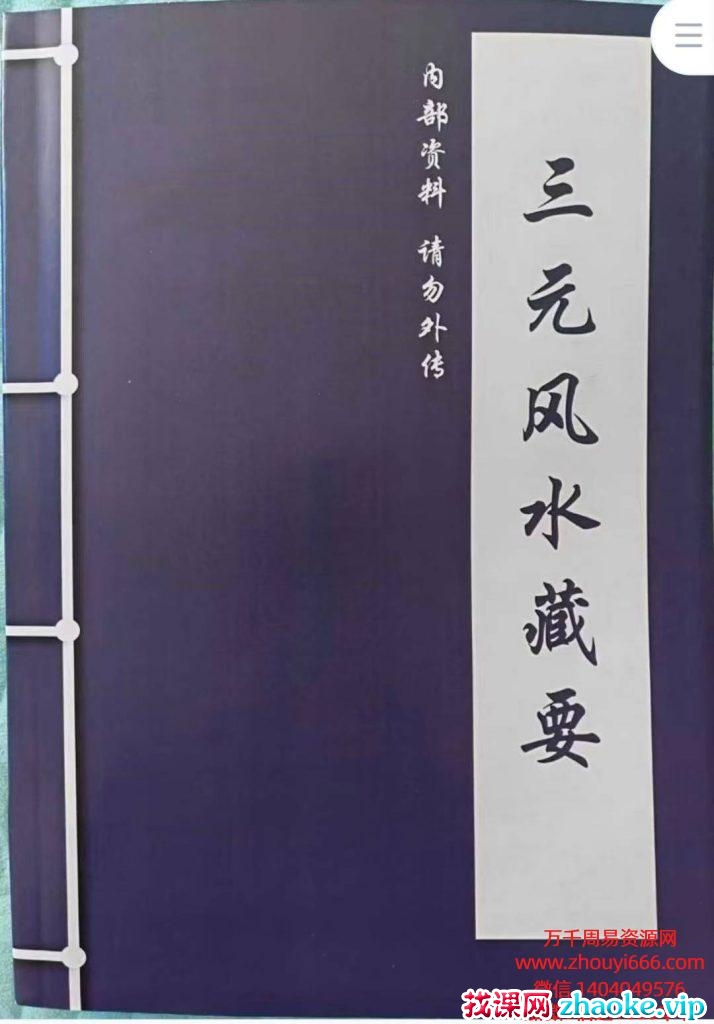 三元风水藏要
内部资料 请勿外传
万千周易资源网
www.zhouyi666.com
微信 1404049576
找课网zhaoke.vip